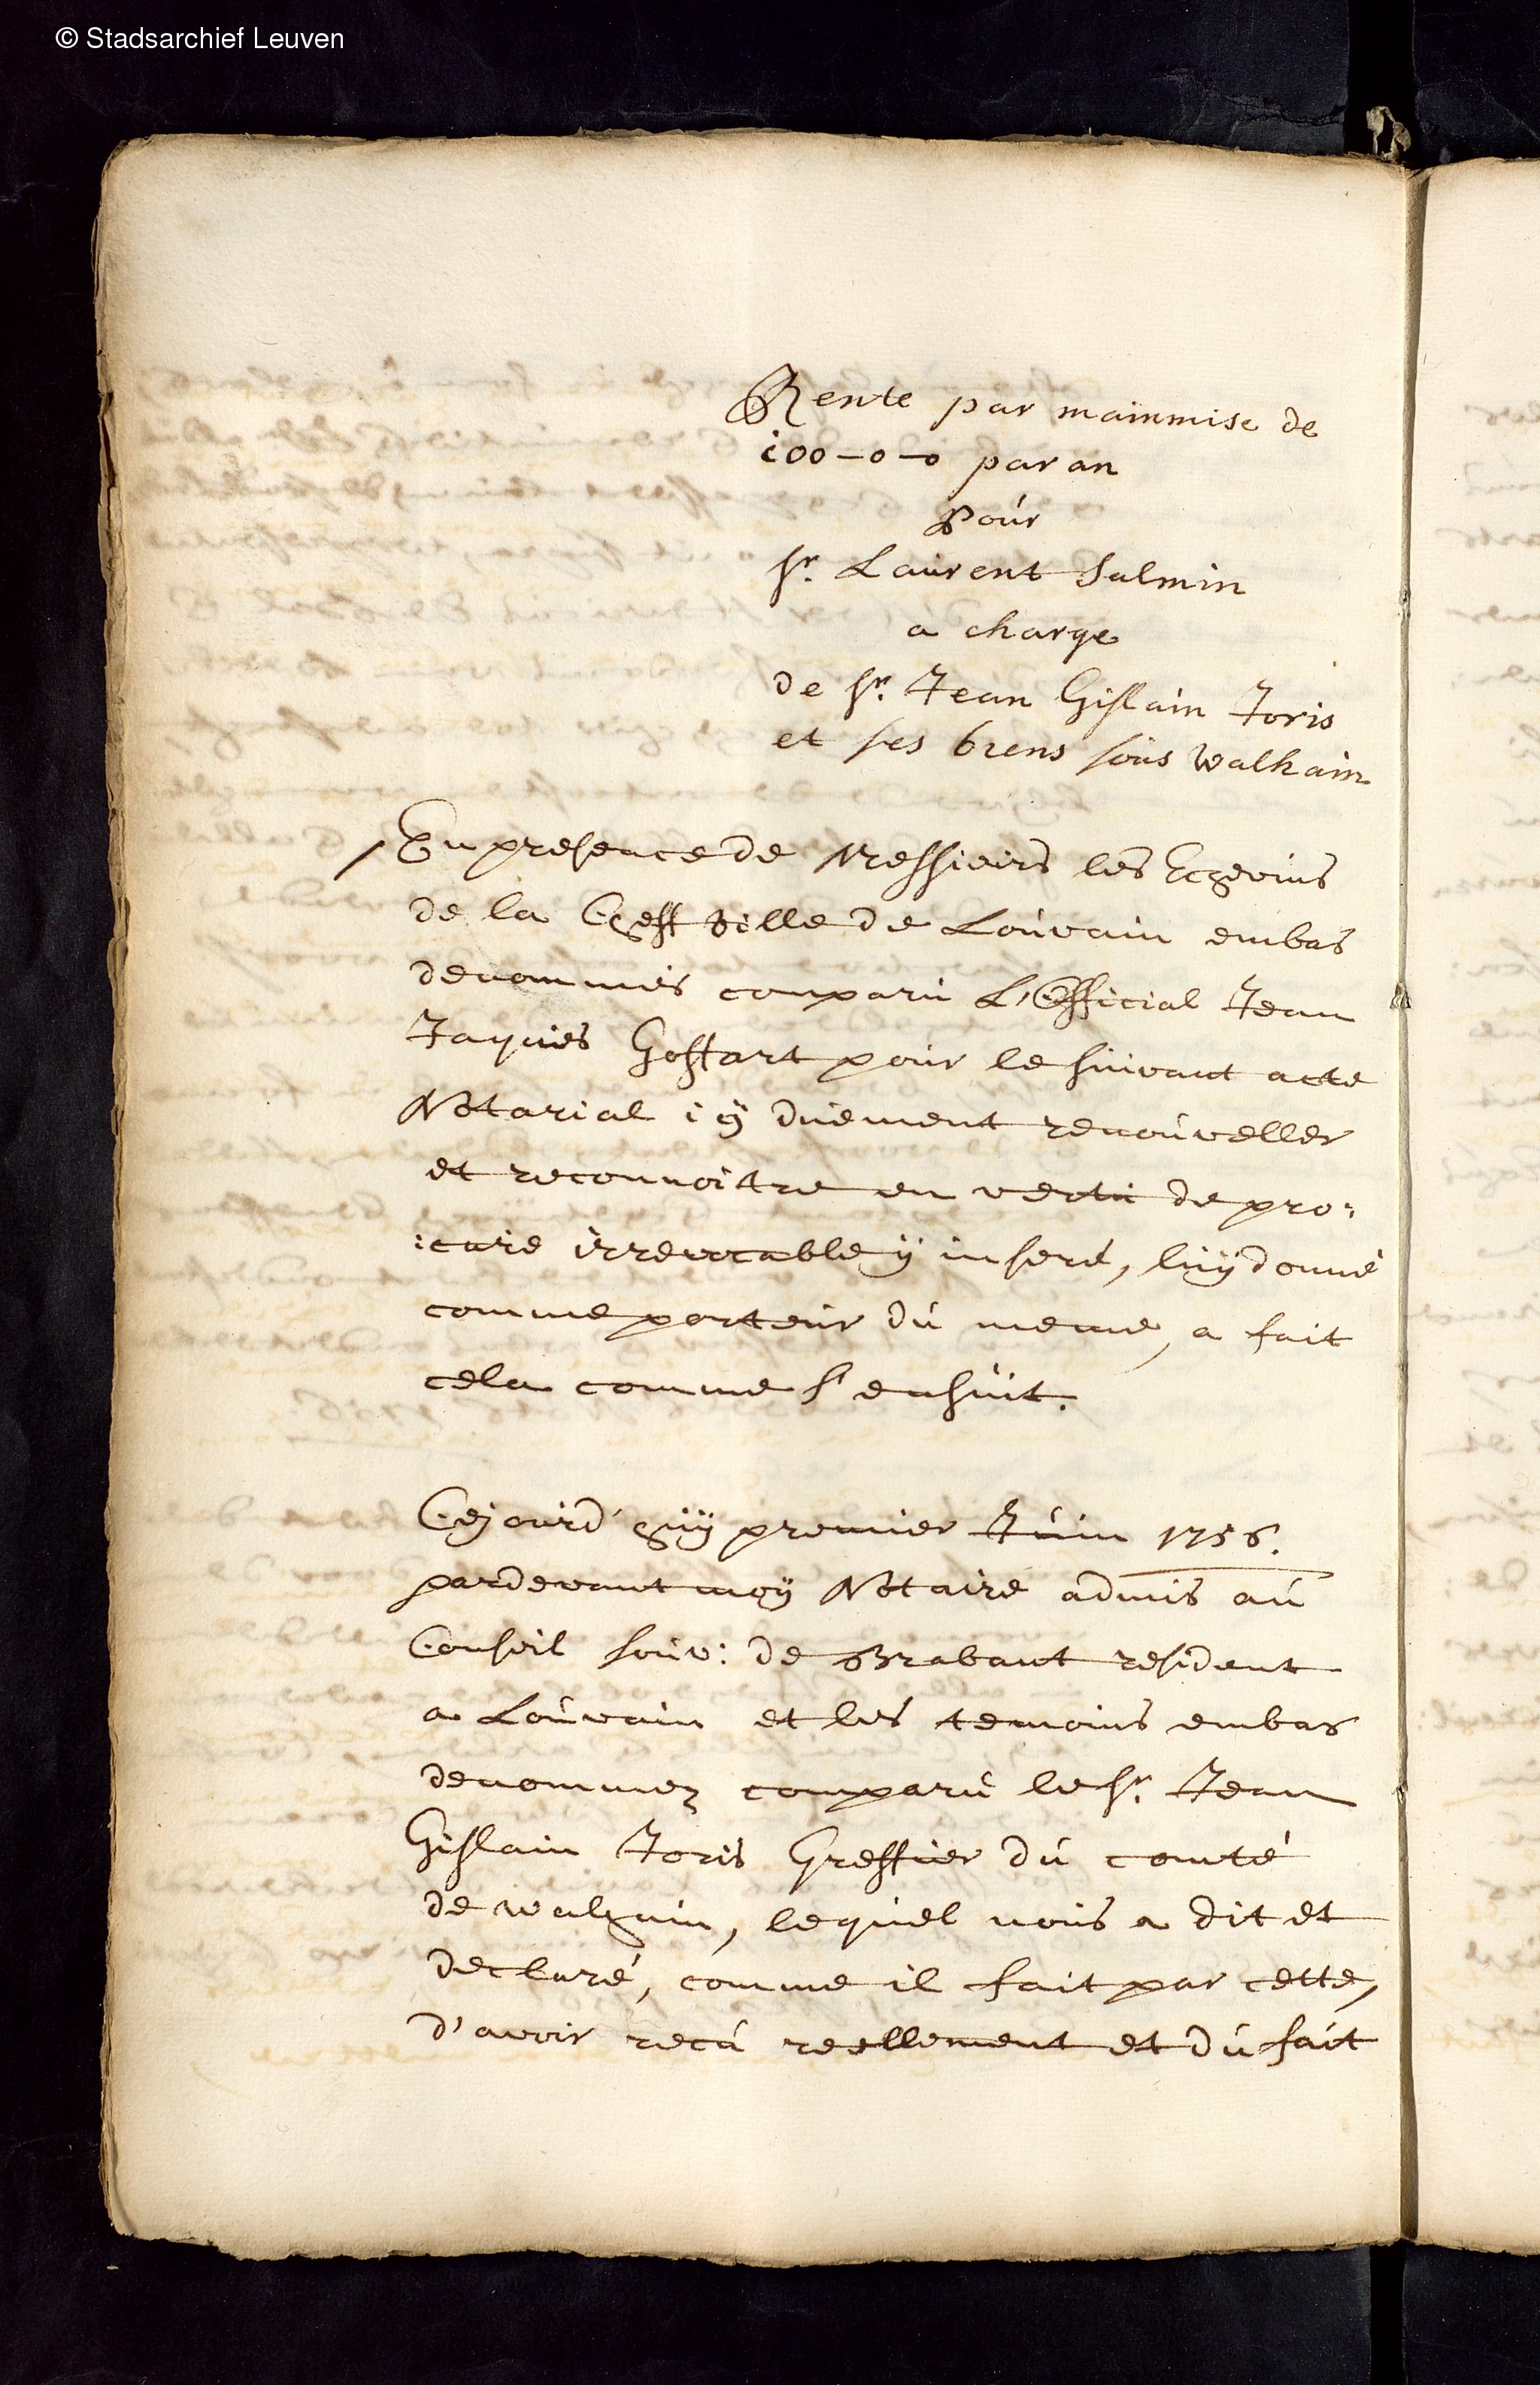 © Stadsarchief Leuven
Rente par mainmise de
100-0-0 par an
Pour
Sr. Laurent Salmin
a charge
de Sr. Jean Gislain Joris
et ses biens sous Walhain
En presence de Messieurs les Echevins
de la Cheff ville de Louvain embas
denommés comparu L'Official Jean
Jaques Goffart pour le suivant acte
Notarial icÿ duement renouveller
et reconnoitre en vertu de pro:
:cure irrevocable ÿ inseré, luÿ donné
comme porteur du meme, a fait
cela comme s'ensuit.
Cejourd'huÿ premier Juin 1756.
pardevant moÿ Notaire admis au
Conseil souv: de Brabant resident
a Louvain et les temoins embas
denommez comparu le Sr. Jean
Gislain Joris Greffier du comté
de walhain, lequel nous a dit et
declaré, comme il fait par cette,
d'avoir recu reellement et du fait